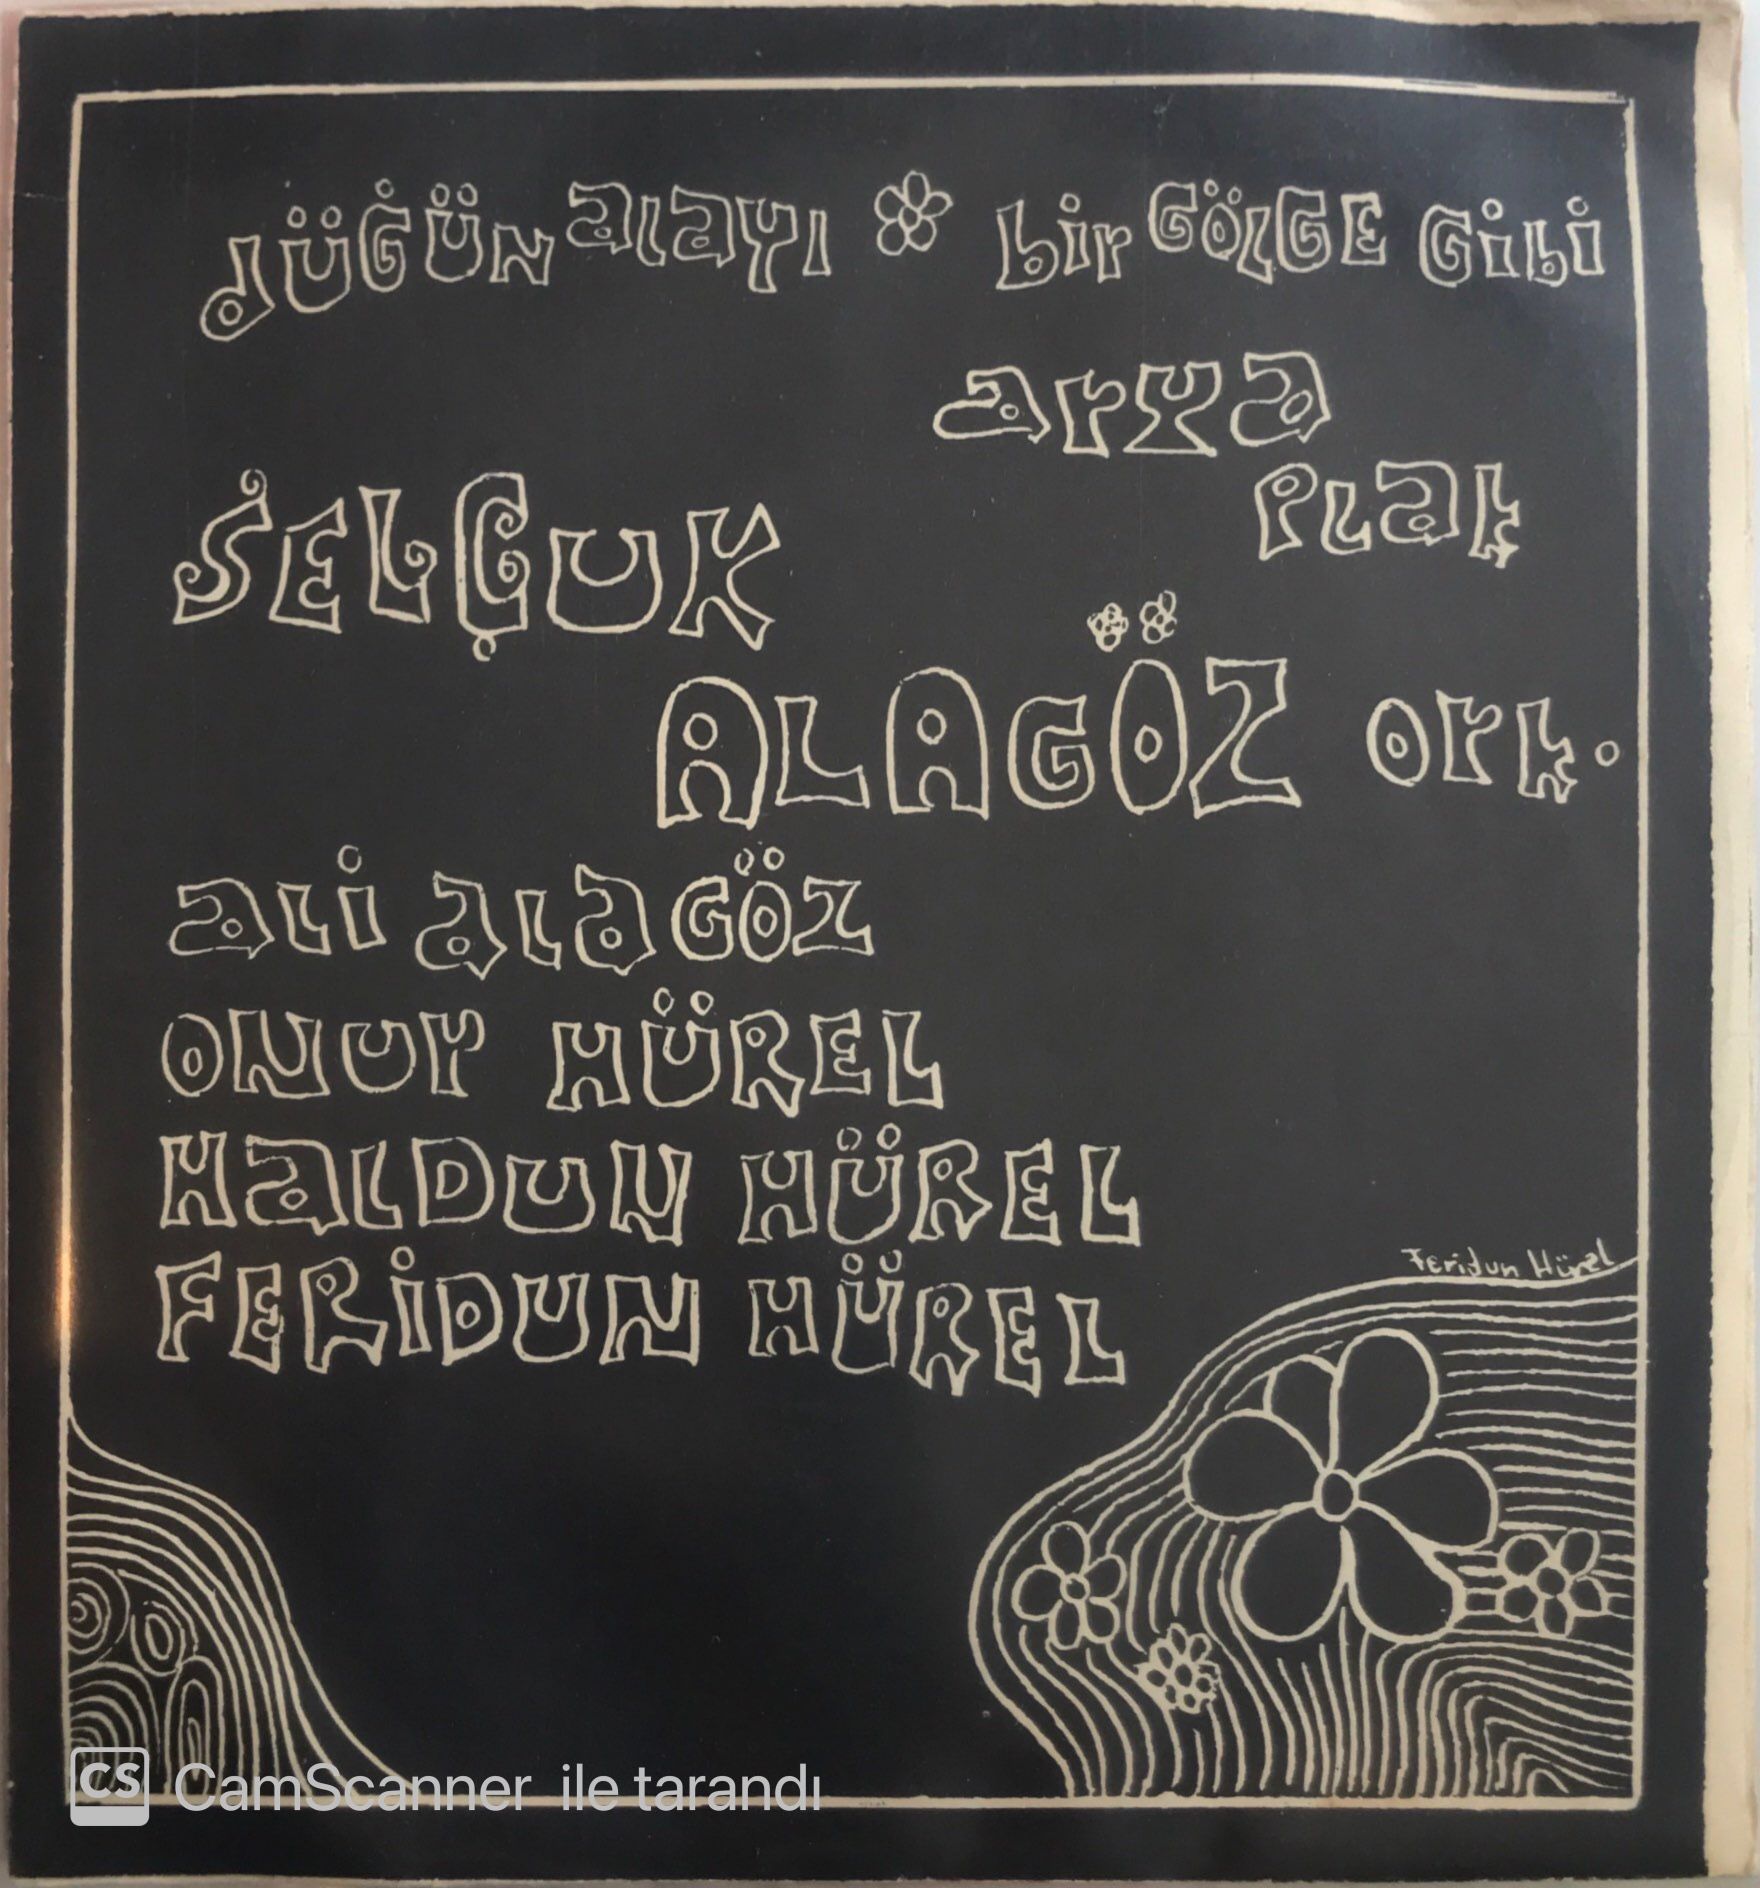 düĞün alayı bir GÖLGE Gibi
arya
PLak
SELÇUK
ALAGÖZ ork.
ali alaGöz
ONUr HÜREL
HaLDUN HÜREL
FERİDUN HÜREL
Feridun Hürel
CS CamScanner ile tarandı